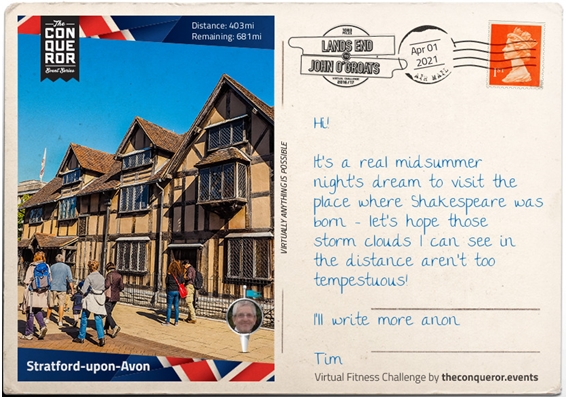 The
CONQUEROR
Event Series
Distance: 403mi
Remaining: 681mi
Stratford-upon-Avon
VIRTUALLY ANYTHING IS POSSIBLE
LANDS END
TO
JOHN O'GROATS
VIRTUAL CHALLENGE
Apr 01
2021
AIR MAIL
1ST
Hi!
It's a real midsummer
night's dream to visit the
place where Shakespeare was
born - let's hope those
storm clouds I can see in
the distance aren't too
tempestuous!
I'll write more anon
Tim
Virtual Fitness Challenge by theconqueror.events